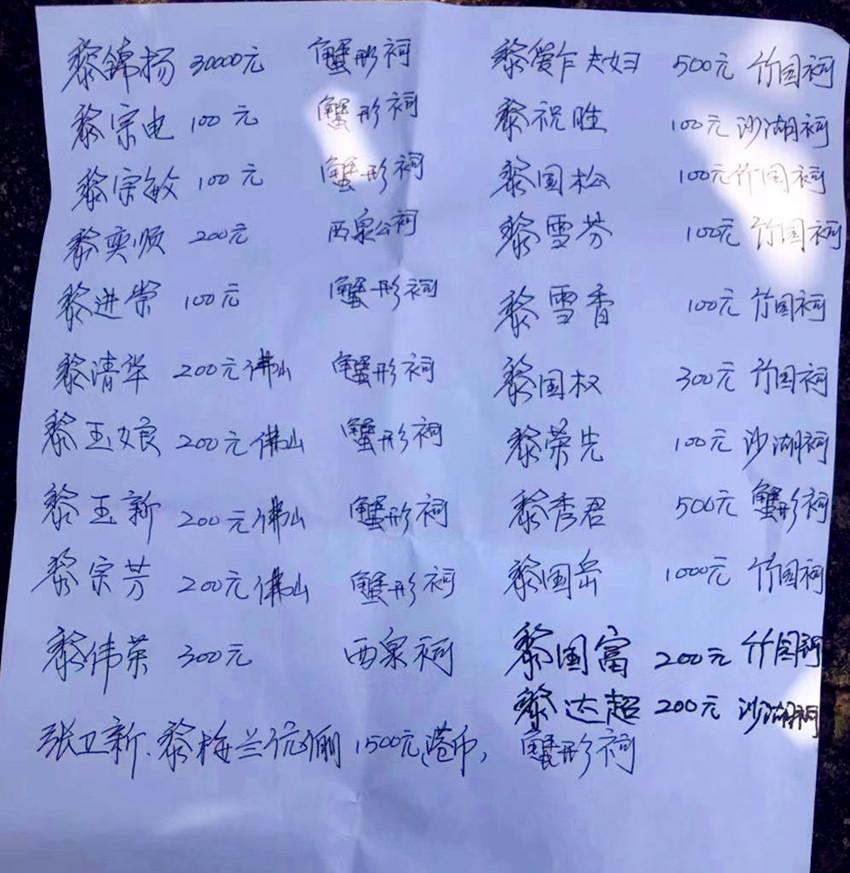 黎锦扬 30000元 蟹形祠
黎宗电 100元 蟹形祠
黎宗敏 100元 蟹形祠
黎奕顺 200元 西泉公祠
黎进崇 100元 蟹形祠
黎清华 200元佛山 蟹形祠
黎玉娘 200元佛山 蟹形祠
黎玉新 200元佛山 蟹形祠
黎宗芳 200元佛山 蟹形祠
黎伟荣 300元 西泉祠
张卫新、黎梅兰伉俪 1500元、港币, 蟹形祠
黎爱作夫妇 500元 竹园祠
黎祝胜 100元 沙湖祠
黎国松 100元 竹园祠
黎雪芬 100元 竹园祠
黎雪香 100元 竹园祠
黎国权 300元 竹园祠
黎荣先 100元 沙湖祠
黎秀君 500元 蟹形祠
黎国岳 1000元 竹园祠
黎国富 200元 竹园祠
黎达超 200元 沙湖祠